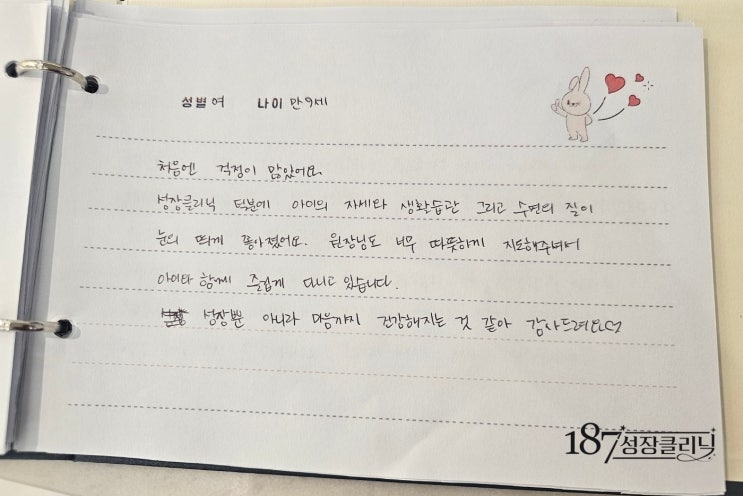 성별 여 나이 만 9세
처음엔 걱정이 많았어요
성장클리닉 덕분에 아이의 자세와 생활습관 그리고 수면의 질이
눈의 띄게 좋아졌어요. 원장님도 너무 따뜻하게 지도해주녀서
아이와 함께 즐겁게 다니고 있습니다.
성장뿐 아니라 마음까지 건강해지는 것 같아 감사드려요
187성장클리닉